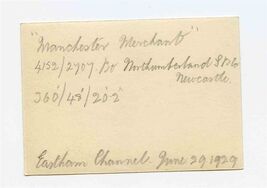 "Manchester Merchant"
4152/2707 Bo Northumberland S.B.Co
Newcastle.
360'/48'/20.2
Eastham Channel June 29 1929